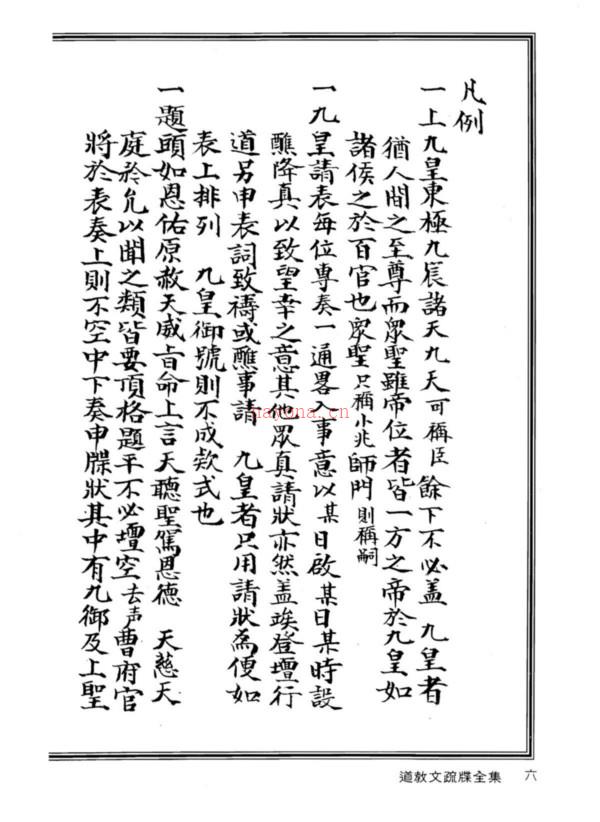 凡例
一上九皇東極九宸諸天九天可稱臣餘下不必蓋 九皇者
猶人間之至尊而眾聖雖帝位者皆一方之帝於九皇如
諸侯之於百官也眾聖只稱小兆師門則稱嗣
一九皇請表每位專奏一通畧入事意以某日啟某日某時設
醮降真以致望幸之意其他眾真請狀亦然盖竢登壇行
道另申表詞致禱或醮事請 九皇者只用請狀為便如
表上排列 九皇御號則不成欵式也
一題頭如恩佑原赦天威旨命上言天聽聖駕恩德 天慈天
庭於允以聞之類皆要頂格題平不必壇空去声曹府官
將於表奏上則不空中下奏申牒狀其中有九御及上聖
nayona.cn
道教文疏牒全集 六